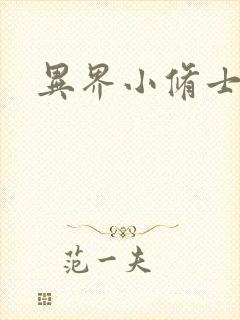 異界小脩士
范一夫